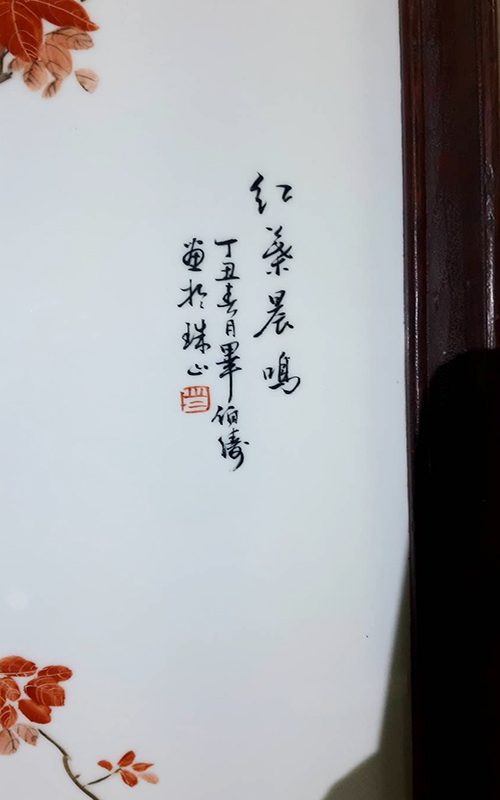 红叶晨鸣
丁丑春月畢伯涛
画於珠山